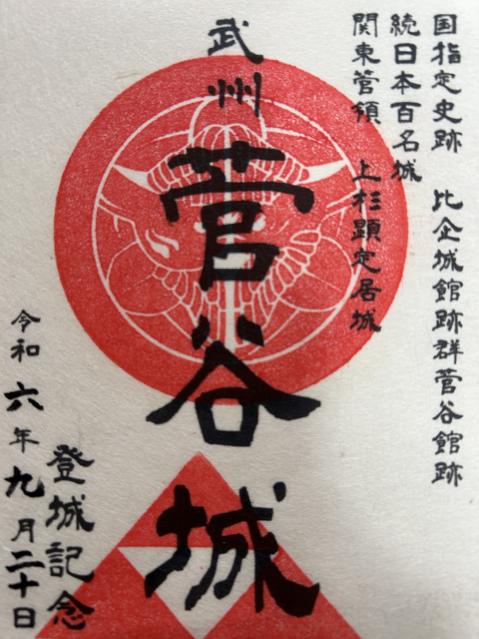 国指定史跡 比企城館跡群菅谷館跡
続日本百名城
関東管領 上杉顕定居城
武州
菅谷城
登城記念
令和六年九月二十日